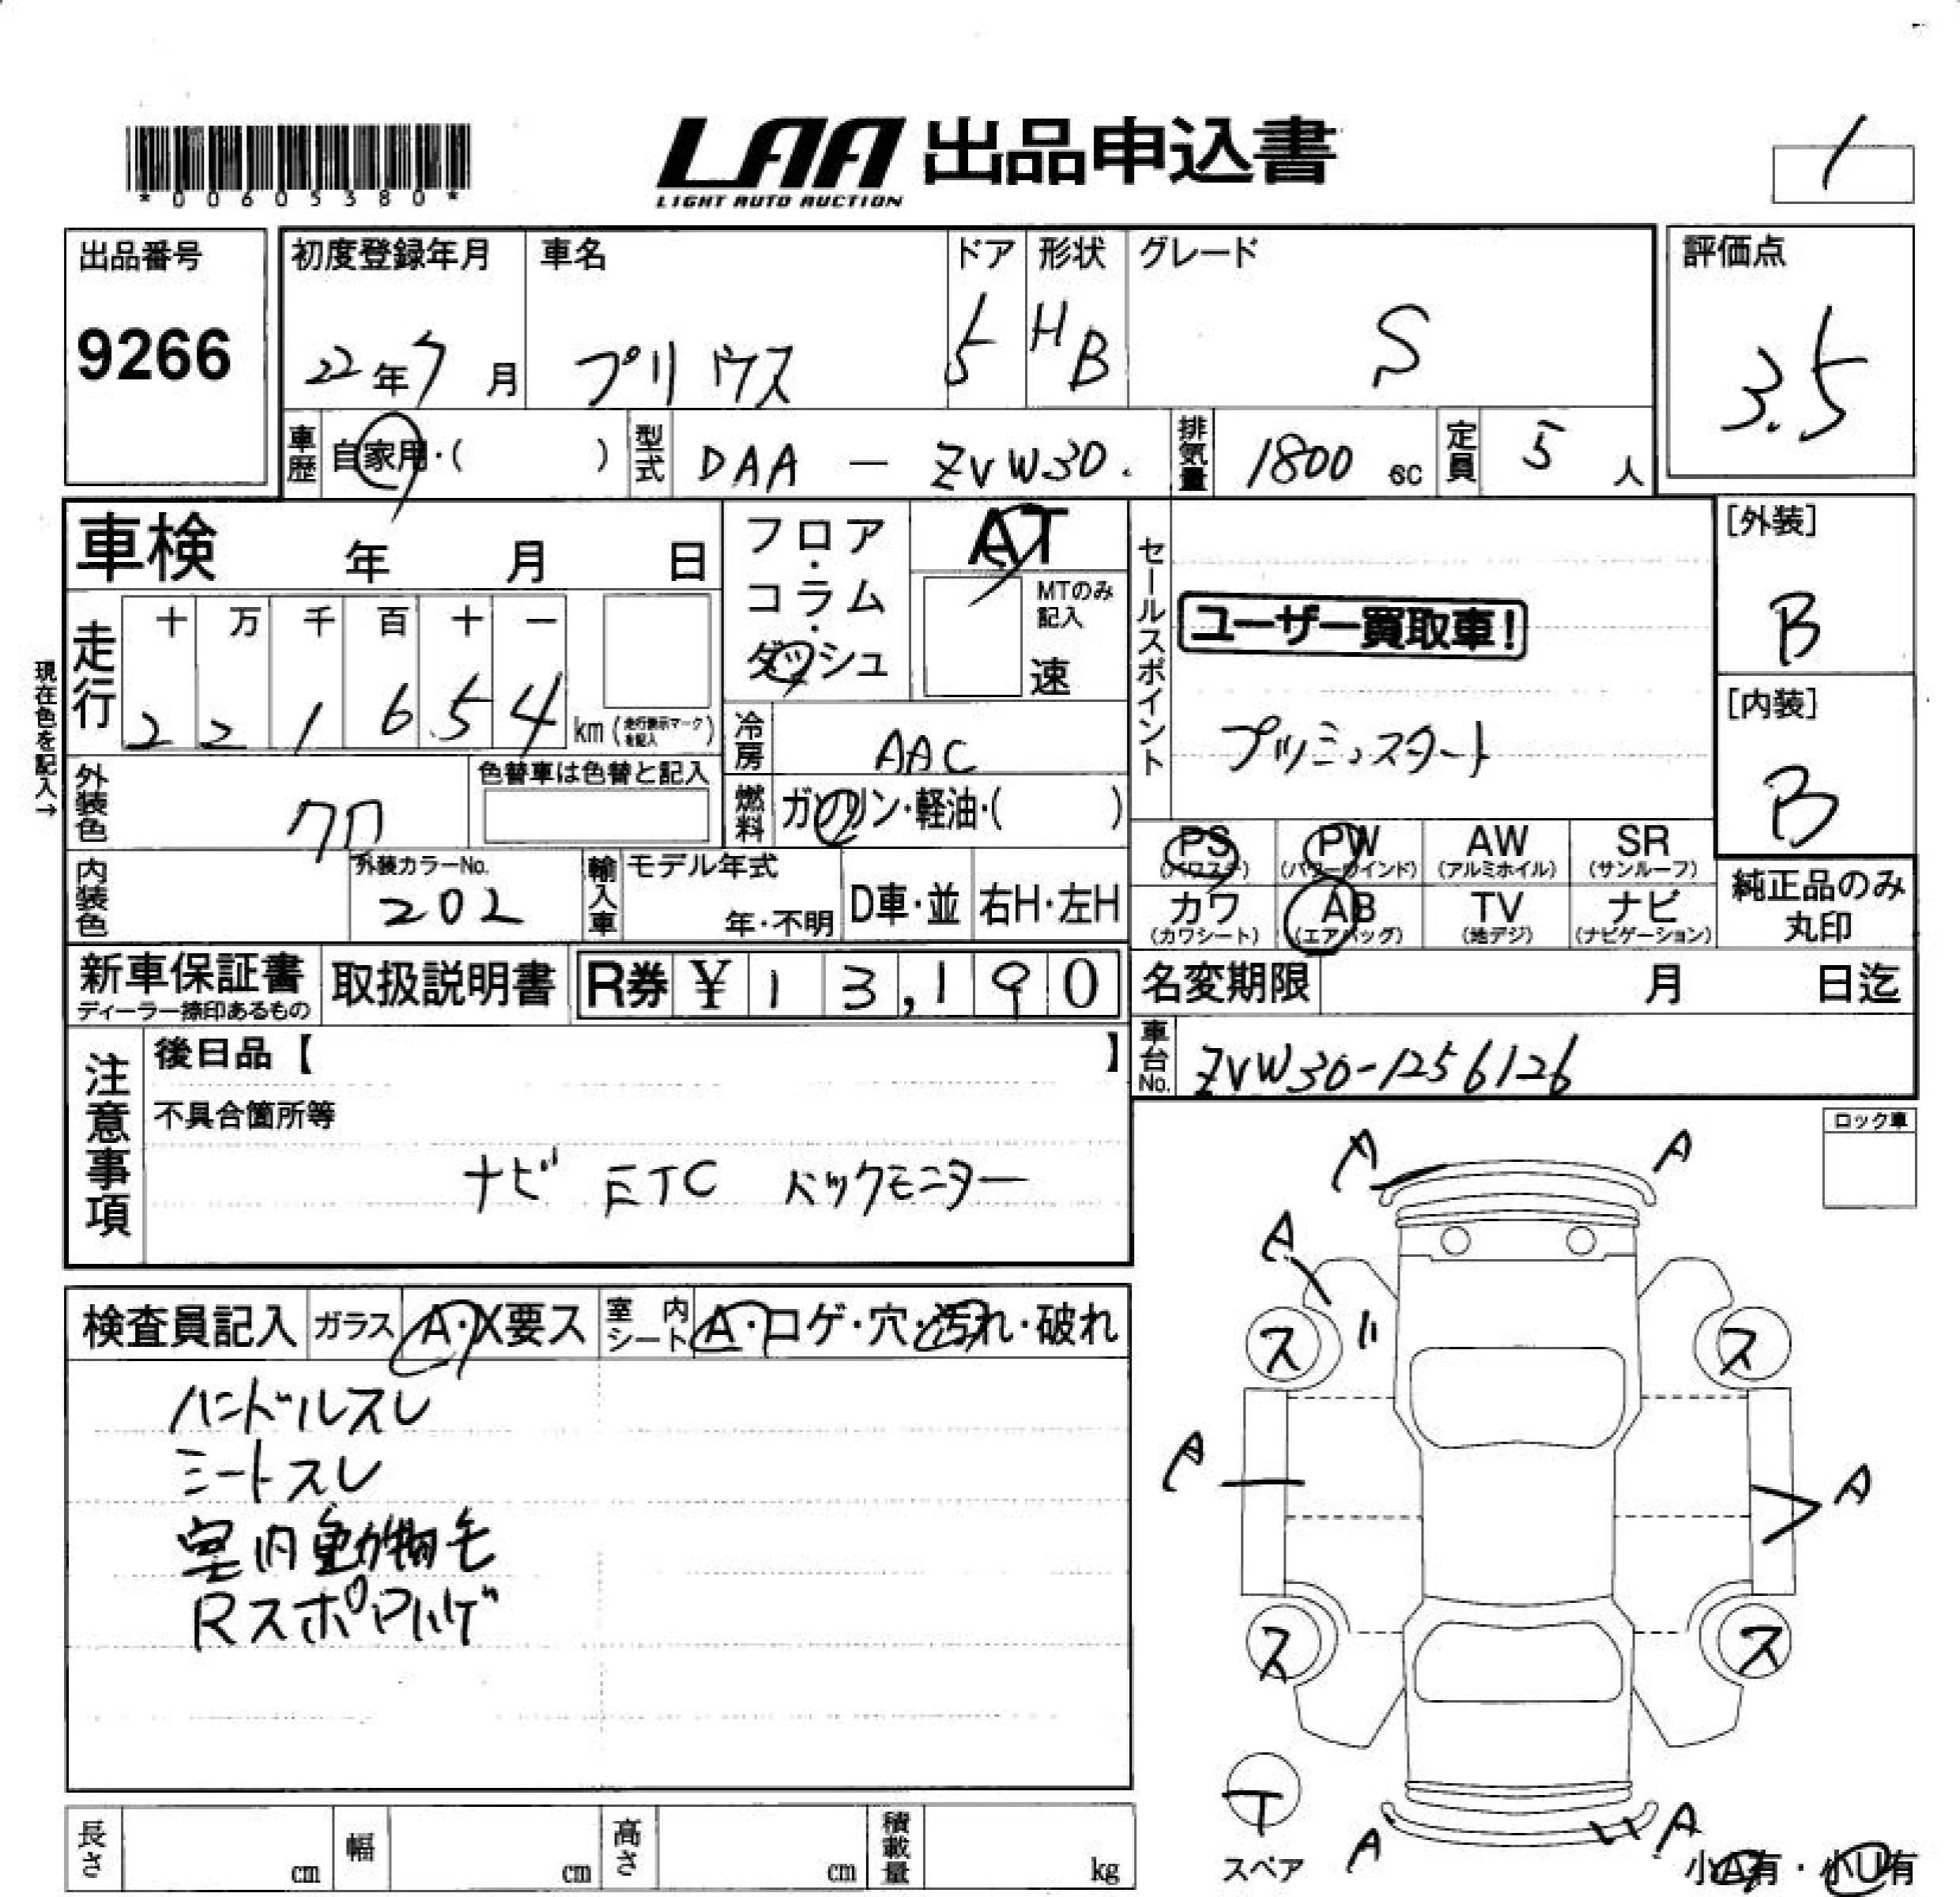 *00605380*
LAA 出品申込書
LIGHT AUTO AUCTION
出品番号
9266
初度登録年月
22年7月
車名
プリウス
ドア
5
形状
HB
グレード
S
評価点
3.5
車歴
自家用・( )
型式
DAA - ZVW30.
排気量
1800 cc
定員
5 人
車検 年 月 日
フロア・コラム・ダッシュ
AT
MTのみ記入
速
セールスポイント
ユーザー買取車!
プッシュスタート
[外装]
B
[内装]
B
現在色を記入→
走行
十 万 千 百 十 一
2 2 1 6 5 4
km (走行表示マーク有記入)
冷房
AAC
外装色
クロ
色替車は色替と記入
燃料
ガソリン・軽油・( )
PS (パワステ)
PW (パワーウインド)
AW (アルミホイル)
SR (サンルーフ)
カワ (カワシート)
AB (エアバッグ)
TV (地デジ)
ナビ (ナビゲーション)
純正品のみ
丸印
内装色
外装カラーNo.
202
輸入車
モデル年式
年・不明
D車・並
右H・左H
新車保証書
ディーラー捺印あるもの
取扱説明書
R券 ¥ 13,190
名変期限 月 日迄
車台No.
ZVW30-1256126
注意事項
後日品【 】
不具合箇所等
ナビ ETC バックモニター
ロック車
検査員記入
ガラス
A・X要ス
室内シート
A・コゲ・穴・汚れ・破れ
ハンドルスレ
シートスレ
室内動物毛
Rスポイラーハゲ
A A
A
ス ス
A A
ス ス
T
スペア
A A
小A有・小U有
長さ cm
幅 cm
高さ cm
積載量 kg